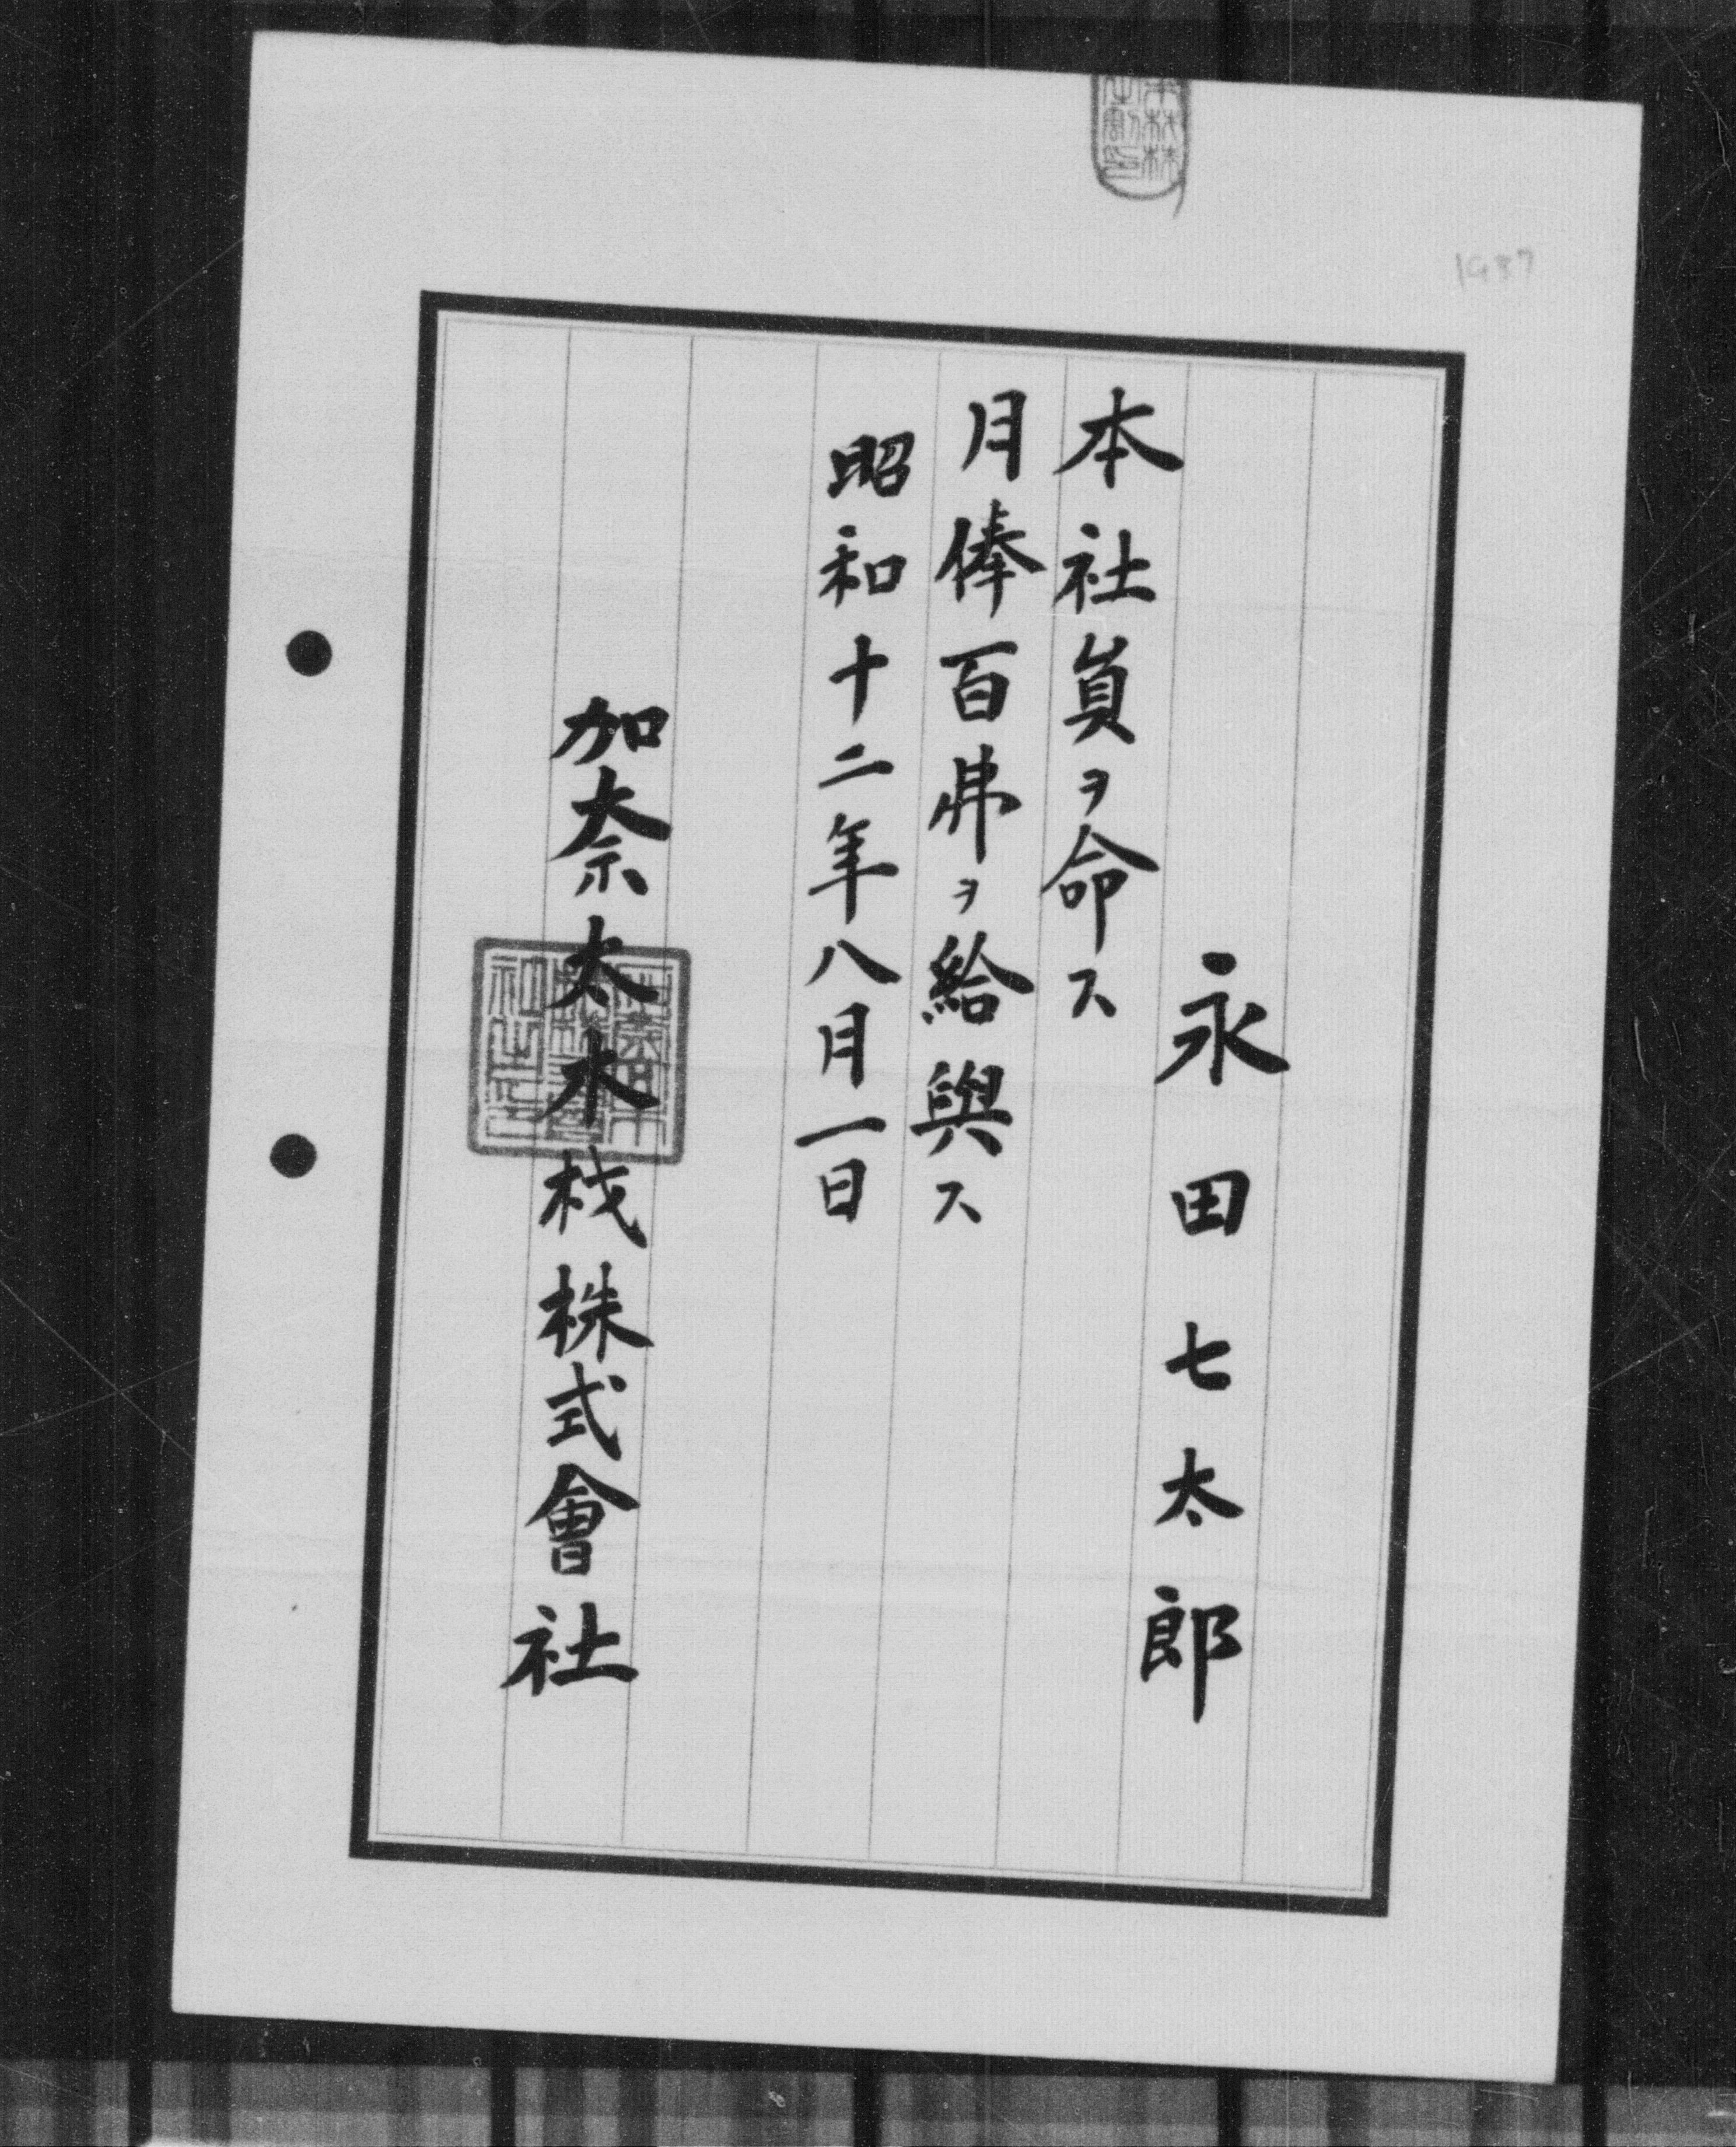 1937
永田七太郎
本社員ヲ命ス
月俸百弗ヲ給與ス
昭和十二年八月一日
加奈太木材株式會社